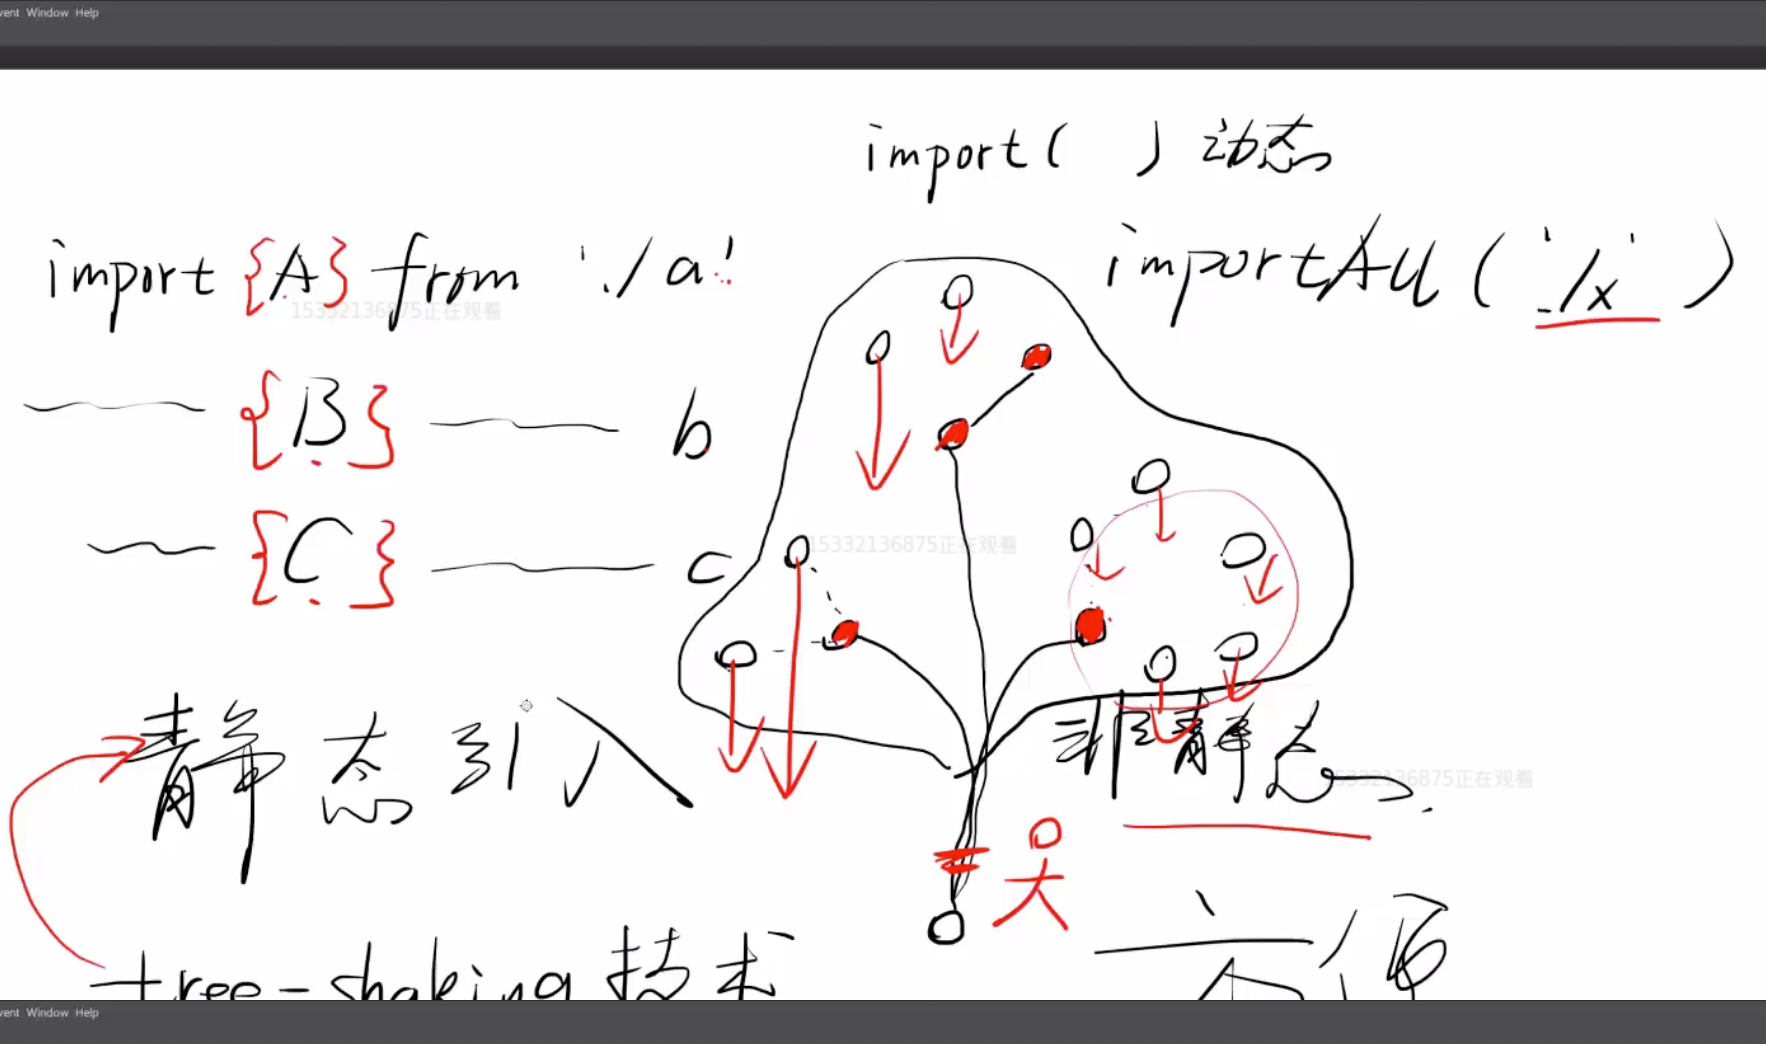 vent Window Help
import( ) 动态
import {A} from './a'
importAll('./x')
15332136875正在观看
{B} b
15332136875正在观看
{C} c
静态引入
非静态
15332136875正在观看
tree-shaking 技术
方便
vent Window Help